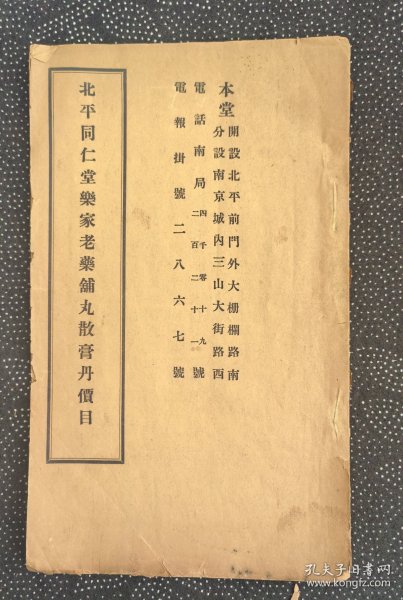 本堂開設北平前門外大柵欄路南
分設南京城內三山大街路西
電話南局四千零十九號
二百二十一
電報掛號二八六七號
北平同仁堂樂家老藥舖丸散膏丹價目
孔夫子旧书网
book.kongfz.com